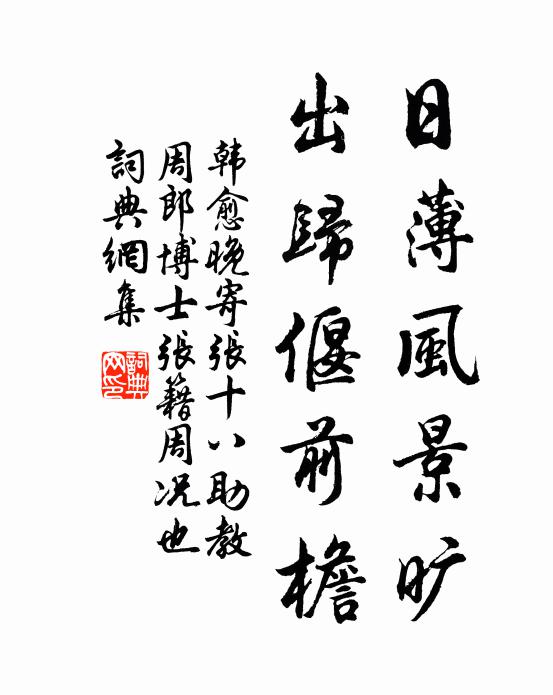 日薄風景旷
出歸偃前檐
韩愈晚寄張十八助教
周郎博士張籍周况也
詞典網集
詞典
网印